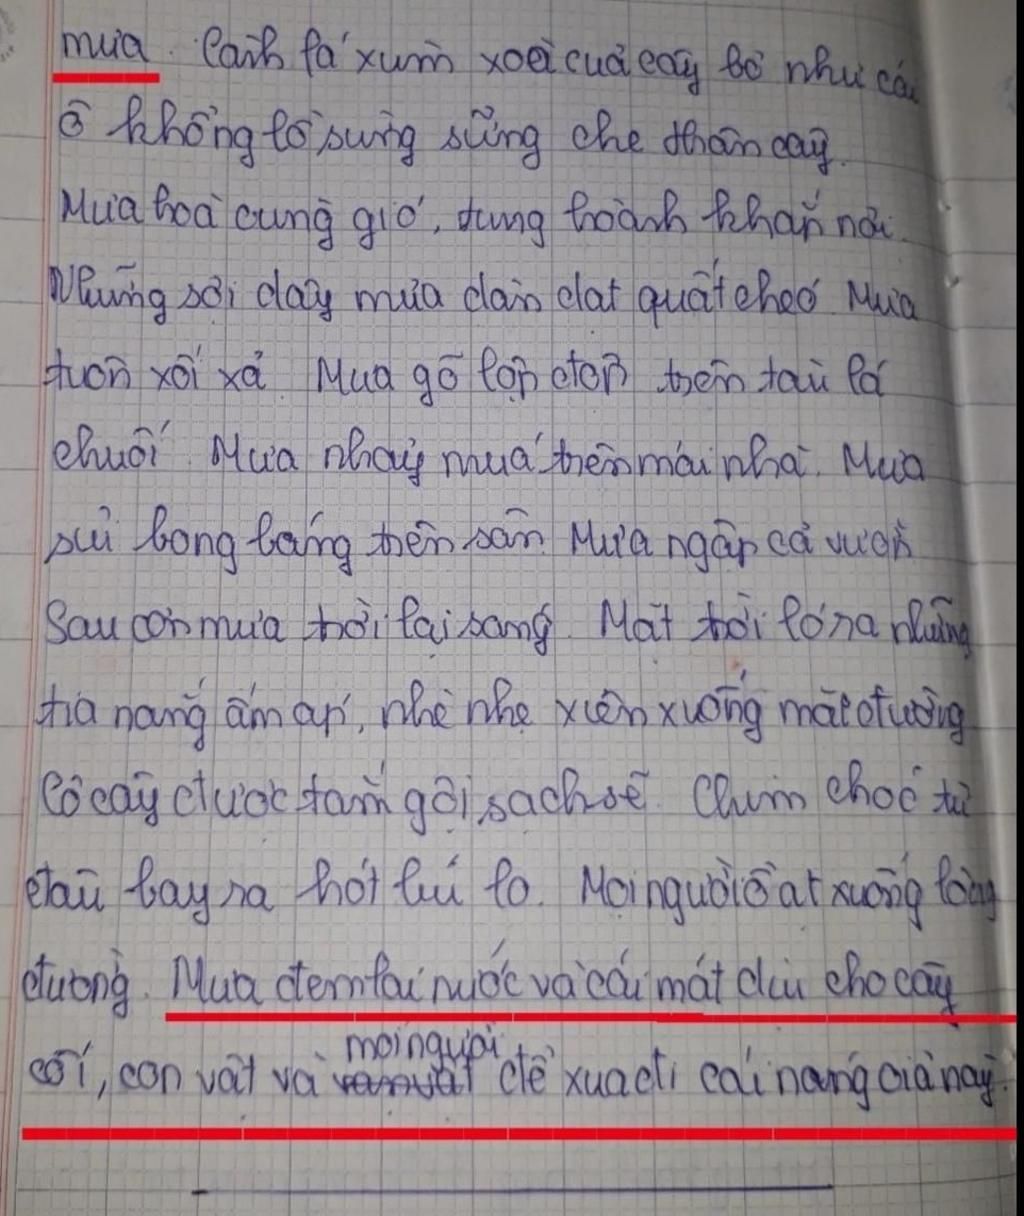 mưa. Cành lá xum xoè của cây bơ như cái
ô khổng lồ sừng sững che thân cây.
Mưa hoà cùng gió, tung hoành khắp nơi.
Những sợi dây mưa dàn dạt quất chéo. Mưa
tuôn xối xả. Mưa gõ lộp độp trên tàu lá
chuối. Mưa nhảy múa trên mái nhà. Mưa
sủi bong bóng trên sân. Mưa ngập cả vườn
Sau cơn mưa trời lại sáng. Mặt trời ló ra những
tia nắng ấm áp, nhè nhẹ xiên xuống mặt đường
Cỏ cây được tắm gội sạch sẽ. Chim chóc từ
đâu bay ra hót líu lo. Mọi người ồ ạt xuống lòng
đường. Mưa đem lại nước và cái mát dịu cho cây
cối, con vật và mọi người để xua đi cái nắng oi ả này.